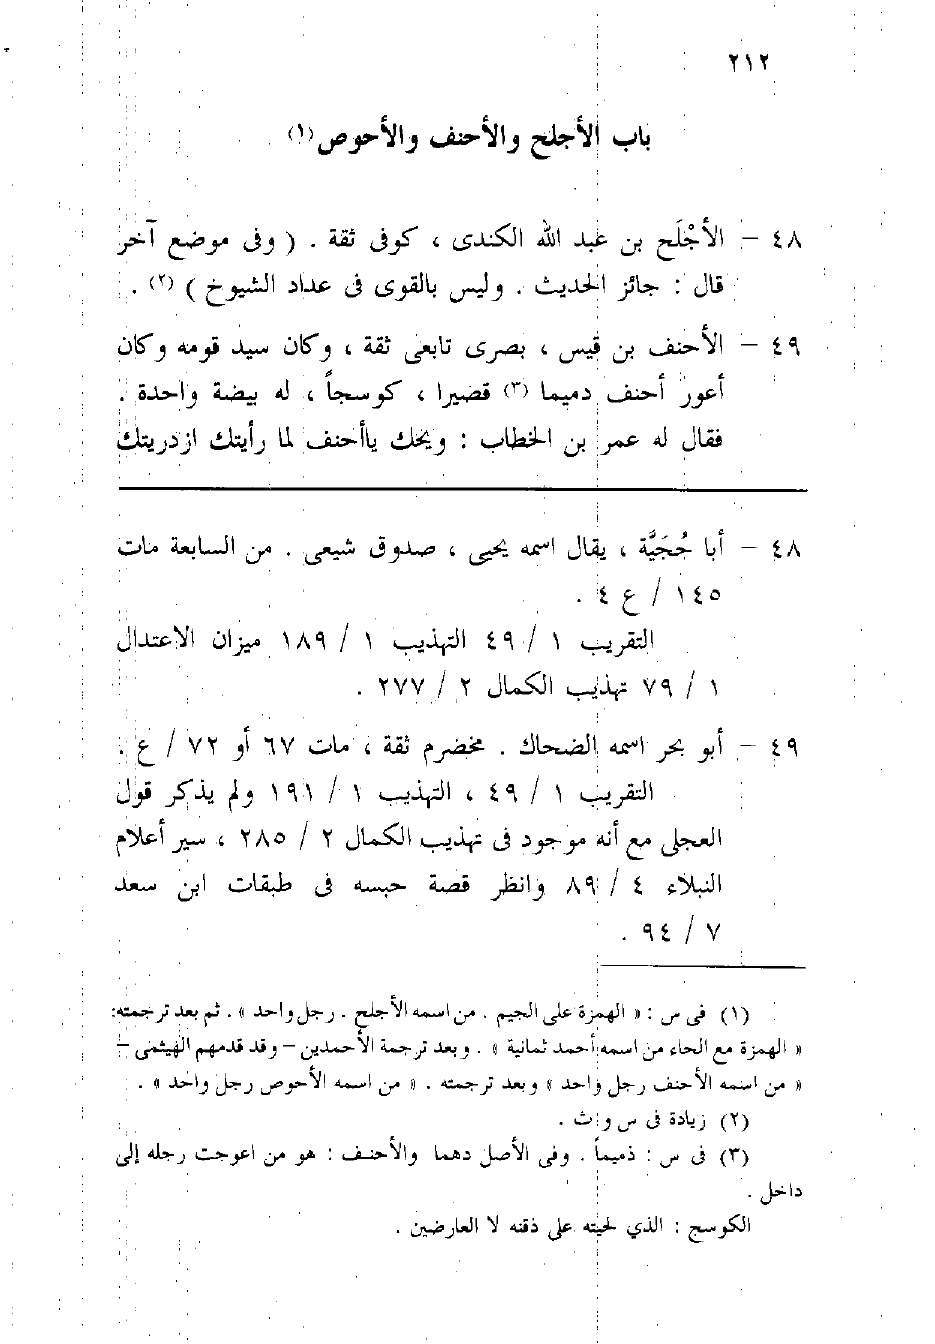 ٢١٢
باب الأجلح والأحنف والأحوص (١)
٤٨ – الأجْلَح بن عبد الله الكندى ، كوفى ثقة . ( وفى موضع آخر
قال : جائز الحديث . وليس بالقوى فى عداد الشيوخ ) (٢) .
٤٩ – الأحنف بن قيس ، بصرى تابعى ثقة ، وكان سيد قومه وكان
أعور أحنف دميما (٣) قصيرا ، كوسجاً ، له بيضة واحدة .
فقال له عمر بن الخطاب : ويحك ياأحنف لما رأيتك ازدريتك
٤٨ – أبا حُجَيَّة ، يقال اسمه يحيى ، صدوق شيعى . من السابعة مات
١٤٥ / ع ٤ .
التقريب ١ / ٤٩ التهذيب ١ / ١٨٩ ميزان الاعتدال
١ / ٧٩ تهذيب الكمال ٢ / ٢٧٧ .
٤٩ – أبو بحر اسمه الضحاك . مخضرم ثقة ، مات ٦٧ أو ٧٢ / ع .
التقريب ١ / ٤٩ ، التهذيب ١ / ١٩١ ولم يذكر قول
العجلى مع أنه موجود فى تهذيب الكمال ٢ / ٢٨٥ ، سير أعلام
النبلاء ٤ / ٨٩ وانظر قصة حبسه فى طبقات ابن سعد
٧ / ٩٤ .
(١) فى س : « الهمزة على الجيم . من اسمه الأجلح . رجل واحد » . ثم بعد ترجمته:
« الهمزة مع الحاء من اسمه أحمد ثمانية » . وبعد ترجمة الأحمدين – وقد قدمهم الهيثمى –
« من اسمه الأحنف رجل واحد » وبعد ترجمته . « من اسمه الأحوص رجل واحد » .
(٢) زيادة فى س وث .
(٣) فى س : ذميماً . وفى الأصل دهما والأحنف : هو من اعوجت رجله إلى
داخل .
الكوسج : الذي لحيته على ذقنه لا العارضين .